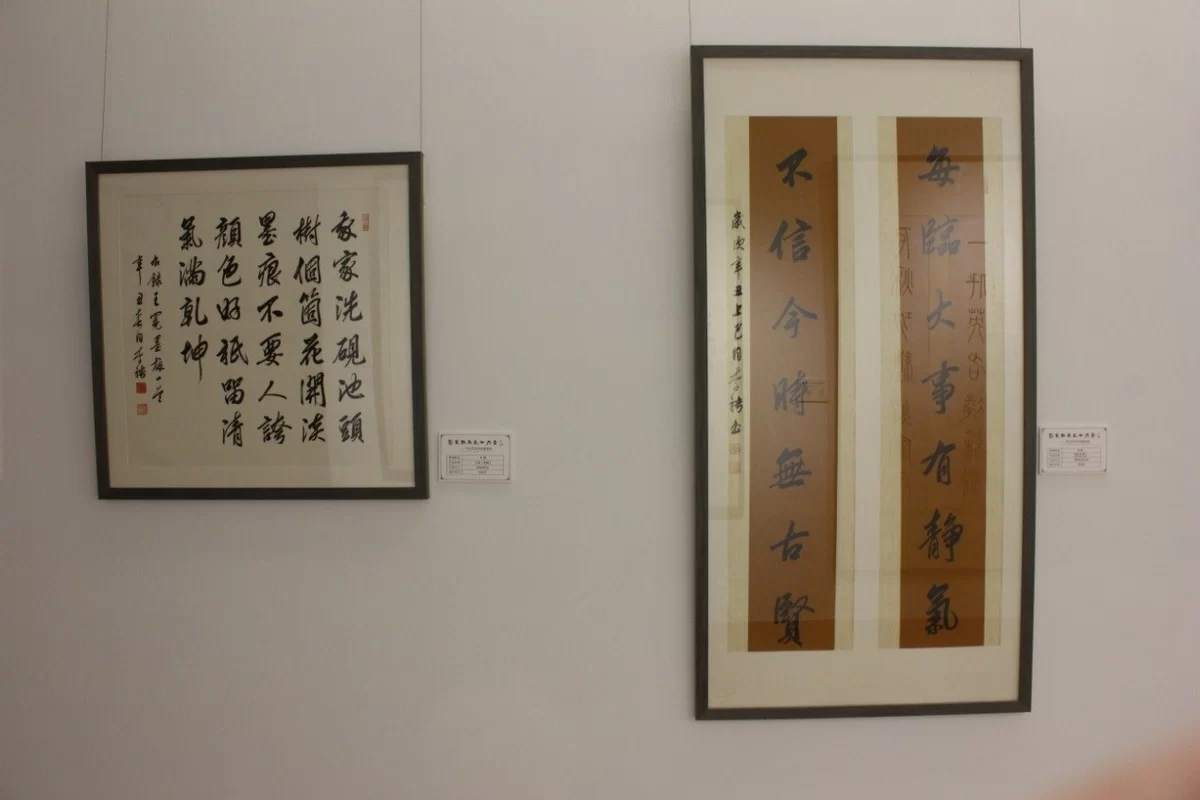 我家洗硯池頭
樹個箇花開淡
墨痕不要人誇
顏色好祇留清
氣滿乾坤
右錄王冕墨梅一首
辛丑春月李
每臨大事有靜氣
不信今時無古賢
歲次辛丑上巳月李